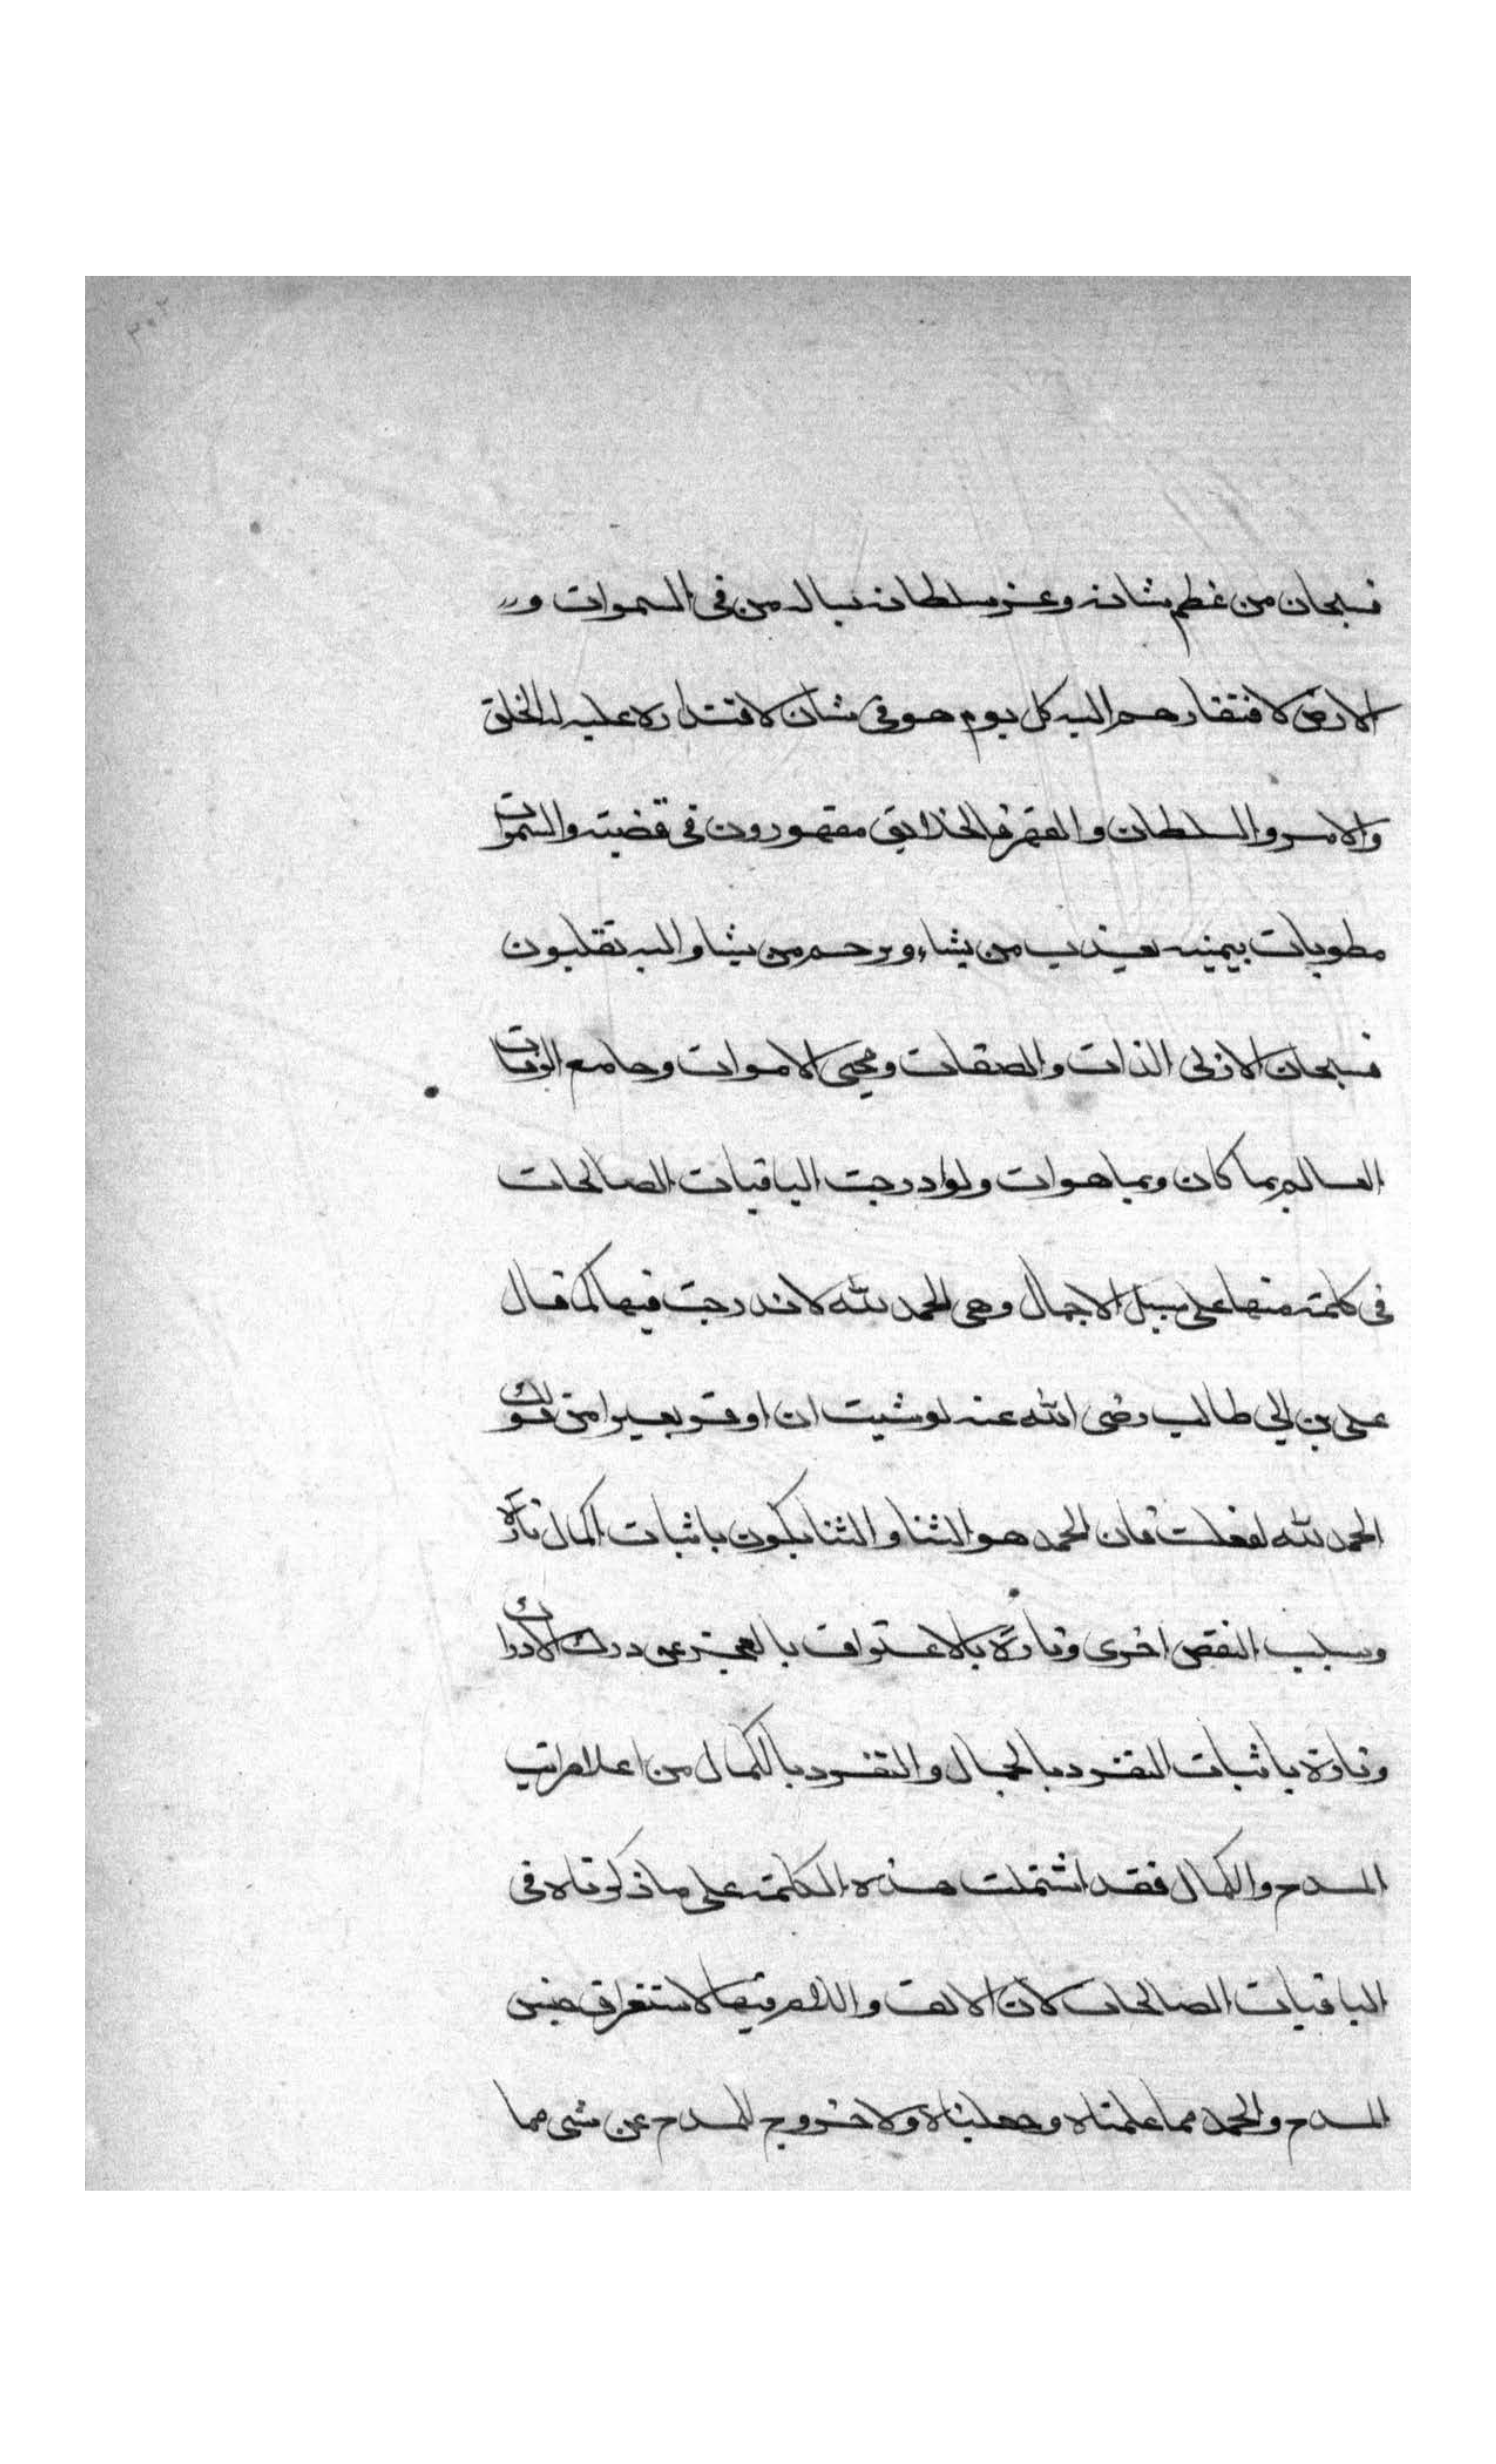 فسبحان من عظم شانه وعز سلطانه يساله من فى السموات و
الارض لافتقارهم اليه كل يوم هو فى شان لاقتداره عليه له الخلق
والامر والسلطان والقهر فالخلايق مقهورون فى قضيته والسموات
مطويات بيمينه يعذب من يشاء ويرحم من يشا واليه تقلبون
فسبحان الازلى الذات والصفات ومحيى الاموات وجامع الرفات
العالم بما كان وبما هوات ولو ادرجت الباقيات الصالحات
فى كلمة منها على سبيل الاجمال وهى الحمد لله لاندرجت فيها كما قال
على بن ابي طالب رضى الله عنه لو شيت ان اوقر بعيرا من قولك
الحمد لله لفعلت فان الحمد هو الثنا والثنا يكون باثبات الكمال تارة
وسلب النقص اخرى وتارة بالاعتراف بالعجز عن درك الادراك
وتارة باثبات التفرد بالجمال والتفرد بالكمال من اعلا مراتب
المدح والكمال فقد اشتملت هذه الكلمة على ما ذكرناه فى
الباقيات الصالحات لان الالف واللام فيها لاستغراق جنس
المدح والحمد مما علمناه وجهلناه ولا خروج للمدح عن شى مما